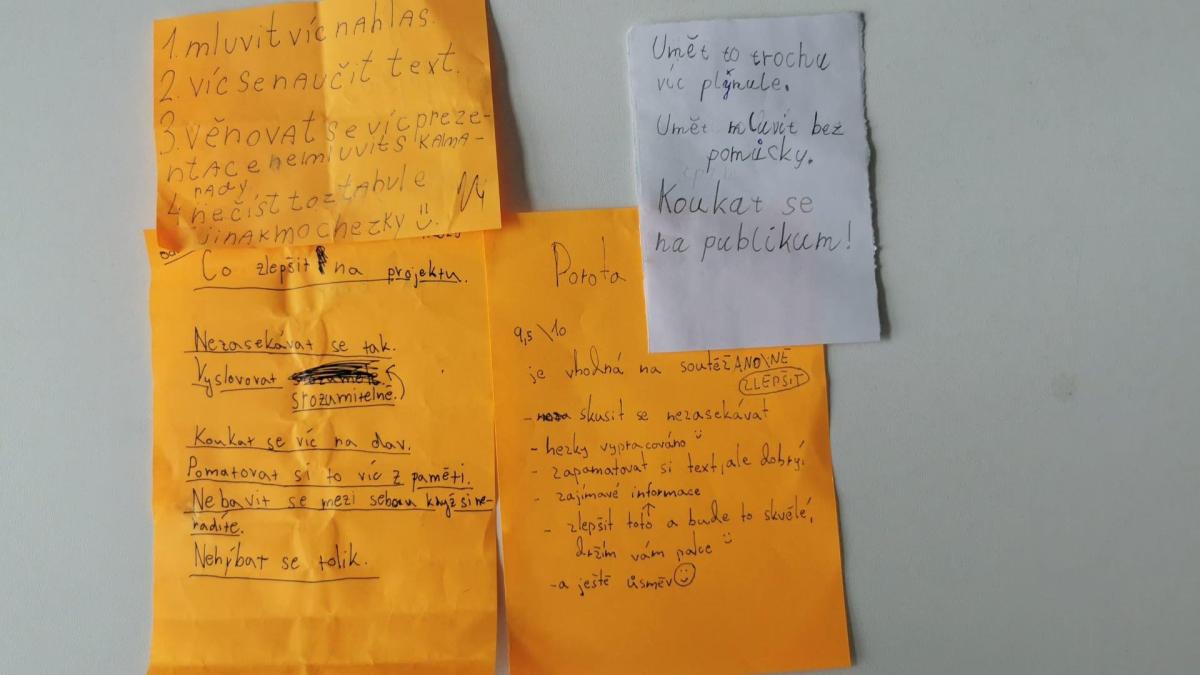 1. mluvit víc nahlas.
2. víc se naučit text.
3. věnovat se víc preze-
ntace ne mluvit s kama-
rády
4. nečíst to z tabule
jinak moc hezky
Co zlepšit na projektu.
Nezasekávat se tak.
Vyslovovat
srozumitelně.
Koukat se víc na dav.
Pomatovat si to víc z paměti.
Nebavit se mezi sebou když si ne-
radíte.
Nehýbat se tolik.
Porota
9,5\10
je vhodná na soutěž ANO\NE
ZLEPŠIT
- skusit se nezasekávat
- hezky vypracováno
- zapamatovat si text, ale dobrý.
- zajímavé informace
- zlepšit toto a bude to skvělé,
držím vám palce
- a ještě úsměv
Umět to trochu
víc plynule.
Umět mluvit bez
pomůcky.
Koukat se
na publikum!